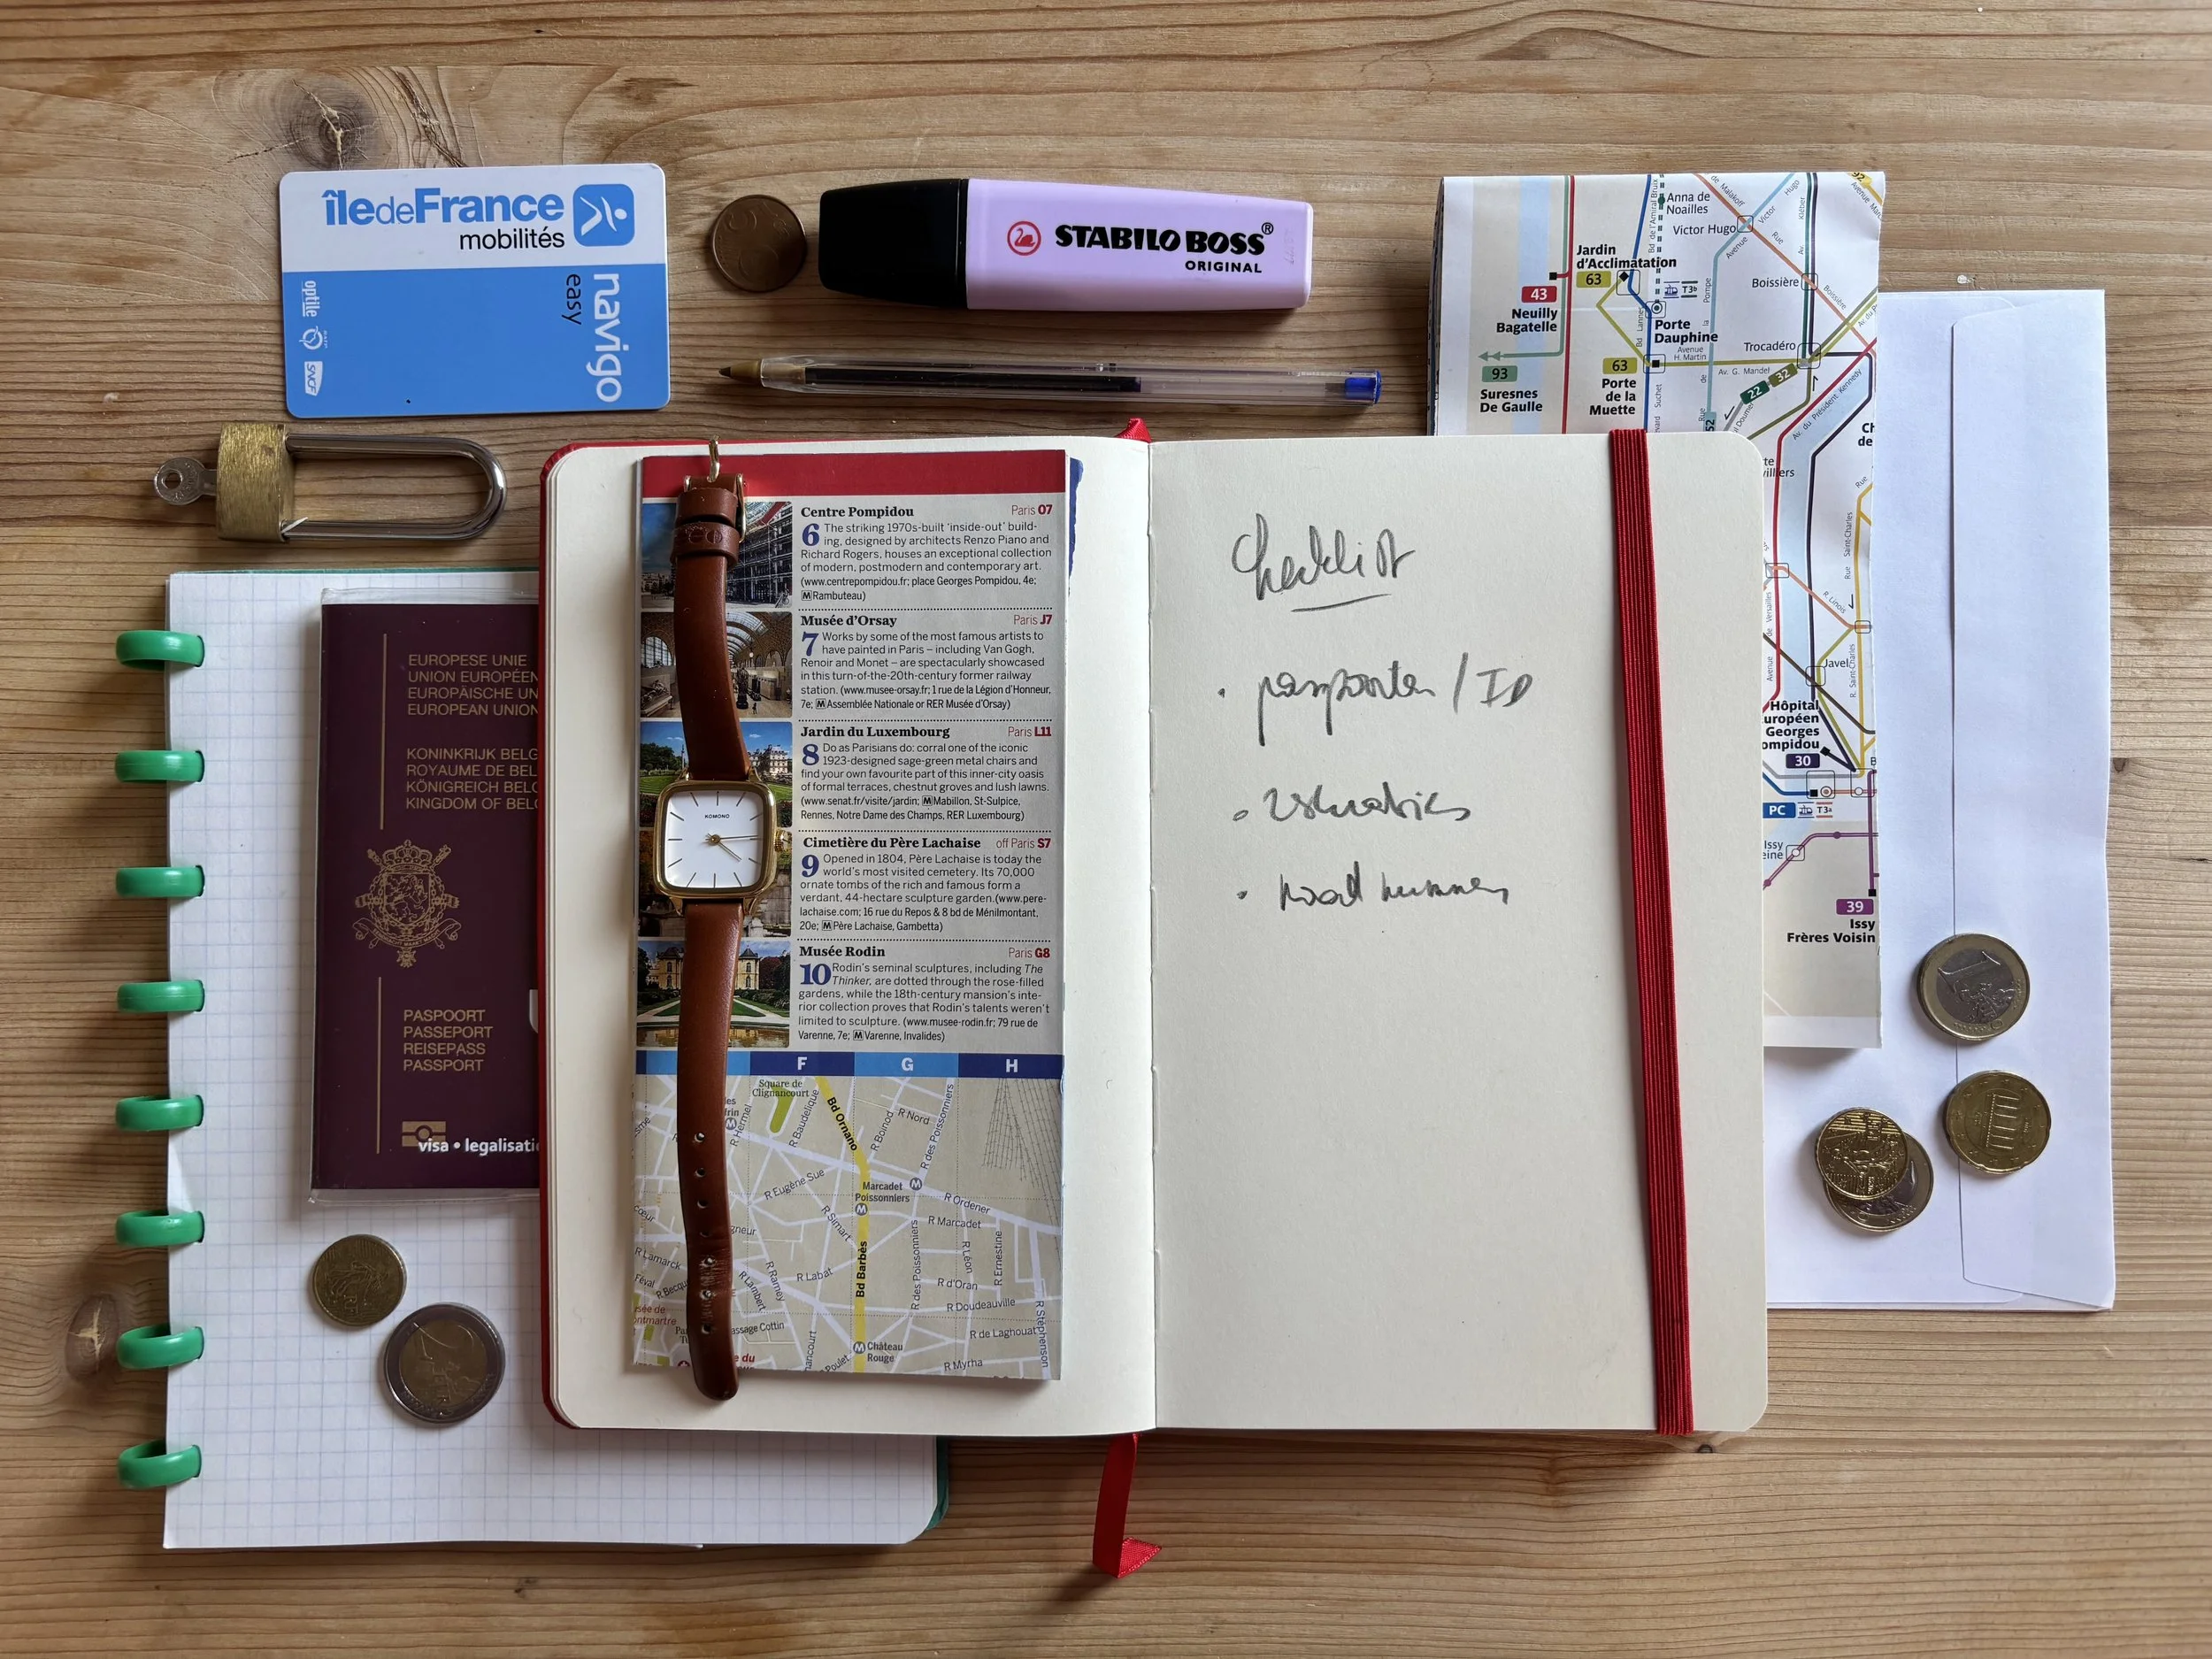 île de France
mobilités
navigo
easy
optile
SNCF
STABILO BOSS®
ORIGINAL
Anna de
Noailles
Victor Hugo
Jardin
d'Acclimatation
63
T3b
Boissière
43
Neuilly
Bagatelle
Porte
Dauphine
Avenue
H. Martin
Trocadéro
Av. G. Mandel
93
Suresnes
De Gaulle
63
Porte
de la
Muette
22
32
Av. du Président Kennedy
52
Rue Saint-Charles
R. Linois
Javel
Hôpital
Georges
30
PC
T3a
Issy
39
Issy
Frères Voisin
EUROPESE UNIE
UNION EUROPÉEN
EUROPÄISCHE UN
EUROPEAN UNION
KONINKRIJK BELG
ROYAUME DE BEL
KÖNIGREICH BELG
KINGDOM OF BELG
PASPOORT
PASSEPORT
REISEPASS
PASSPORT
visa • legalisati
KOMONO
Centre Pompidou Paris O7
6 The striking 1970s-built 'inside-out' build-
ing, designed by architects Renzo Piano and
Richard Rogers, houses an exceptional collection
of modern, postmodern and contemporary art.
(www.centrepompidou.fr; place Georges Pompidou, 4e;
M Rambuteau)
Musée d'Orsay Paris J7
7 Works by some of the most famous artists to
have painted in Paris – including Van Gogh,
Renoir and Monet – are spectacularly showcased
in this turn-of-the-20th-century former railway
station. (www.musee-orsay.fr; 1 rue de la Légion d'Honneur,
7e; M Assemblée Nationale or RER Musée d'Orsay)
Jardin du Luxembourg Paris L11
8 Do as Parisians do: corral one of the iconic
1923-designed sage-green metal chairs and
find your own favourite part of this inner-city oasis
of formal terraces, chestnut groves and lush lawns.
(www.senat.fr/visite/jardin; M Mabillon, St-Sulpice,
Rennes, Notre Dame des Champs, RER Luxembourg)
Cimetière du Père Lachaise off Paris S7
9 Opened in 1804, Père Lachaise is today the
world's most visited cemetery. Its 70,000
ornate tombs of the rich and famous form a
verdant, 44-hectare sculpture garden. (www.pere-
lachaise.com; 16 rue du Repos & 8 bd de Ménilmontant,
20e; M Père Lachaise, Gambetta)
Musée Rodin Paris G8
10 Rodin's seminal sculptures, including The
Thinker, are dotted through the rose-filled
gardens, while the 18th-century mansion's inte-
rior collection proves that Rodin's talents weren't
limited to sculpture. (www.musee-rodin.fr; 79 rue de
Varenne, 7e; M Varenne, Invalides)
F G H
Square de
Clignancourt
R Hermel
R Baudelique
Bd Ornano
R Boinod
R Nord
R des Poissonniers
R Eugène Sue
Marcadet
Poissonniers
R Ordener
R Simart
R Marcadet
R Lamarck
R Lambert
R Ramey
R Labat
Bd Barbès
R des Poissonniers
R Léon
R Ernestine
R d'Oran
R Doudeauville
R Stephenson
R de Laghouat
Château
Rouge
R Myrha
Checklist
/ ID